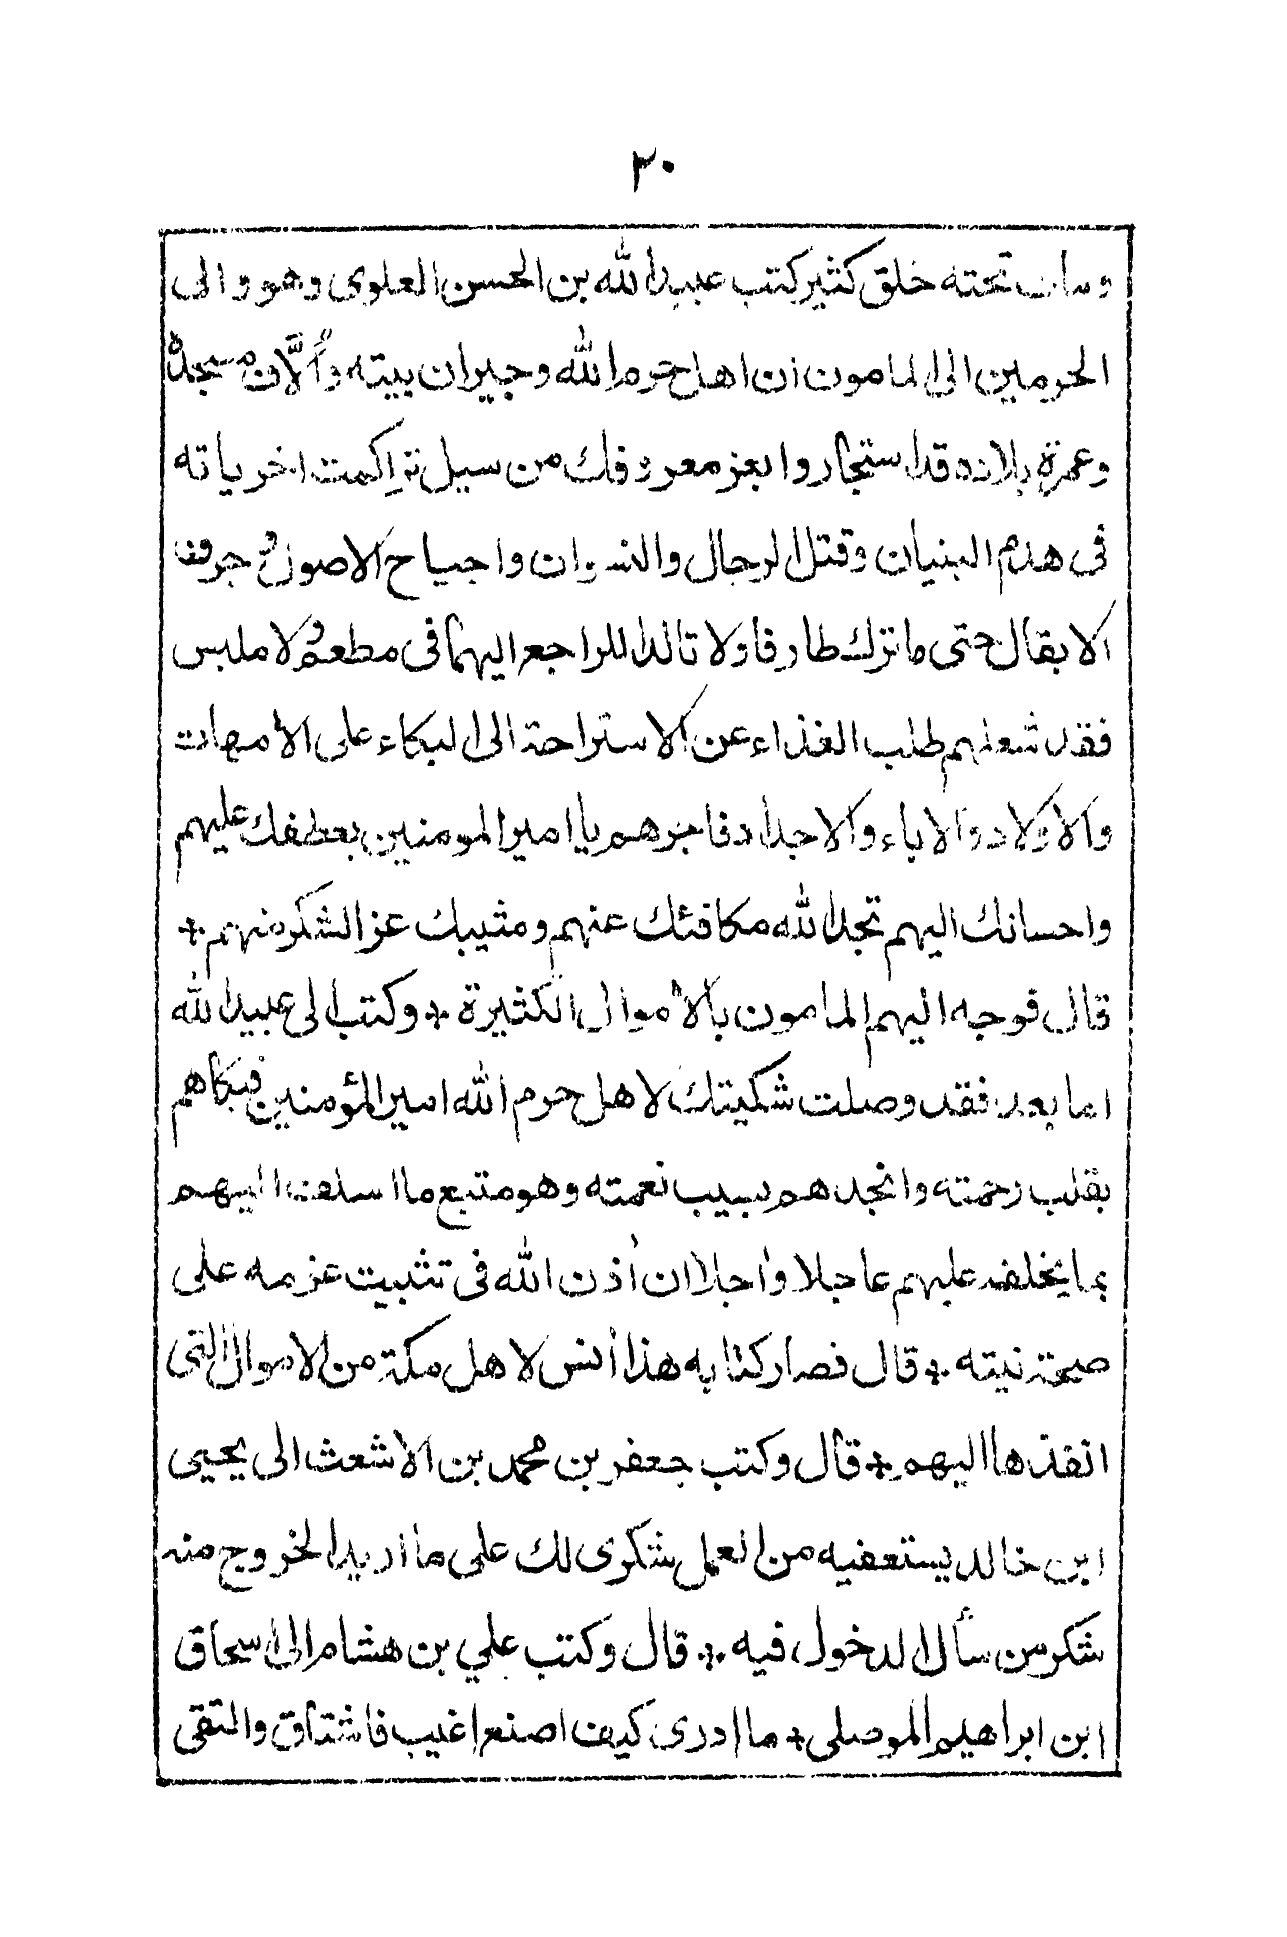 ٣٠
ومات تحته خلق كثير كتب عبيد الله بن الحسن العلوى وهو والى
الحرمين الى المامون ان اهل حرم الله وجيران بيته وأُلّاف مسجده
وعمرة بلاده قد استجاروا بعز معروفك من سيل تراكمت اخرياته
فى هدم البنيان وقتل الرجال والنسوان واجتياح الاصول وجرف
الاثقال حتى ما ترك طارفا ولا تالدا للراجع اليهما فى مطعم ولا ملبس
فقد شغلهم طلب الغذاء عن الاستراحة الى البكاء على الأمهات
والاولاد والاباء والاجداد فاجرهم يا امير المومنين بعطفك عليهم
واحسانك اليهم تجد الله مكافئك عنهم ومثيبك عز الشكر منهم
قال فوجه اليهم المامون بالأموال الكثيرة وكتب الى عبيد الله
اما بعد فقد وصلت شكيتك لاهل حرم الله امير المؤمنين فبكاهم
بقلب رحمته وانجدهم بسيب نعمته وهو متبع ما اسلف اليهم
بما يخلفه عليهم عاجلا وأجلا ان أذن الله فى تثبيت عزمه على
صحة نيته قال فصار كتابه هذا أنس لاهل مكة من الاموال التى
انفذها اليهم قال وكتب جعفر بن محمد بن الاشعث الى يحيى
ابن خالد يستعفيه من العمل شكرى لك على ما اريد الخروج منه
شكر من سأل الدخول فيه قال وكتب علي بن هشام الى اسحاق
ابن ابراهيم الموصلى ما ادرى كيف اصنع اغيب فاشتاق والتقى